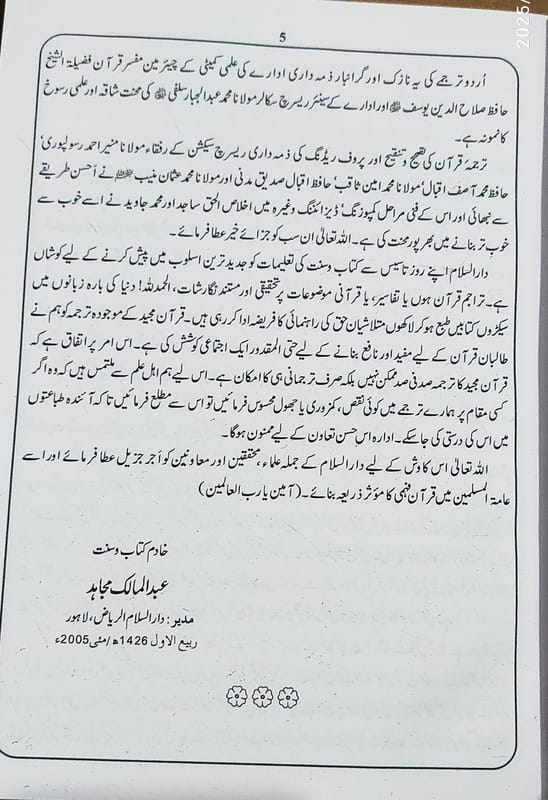 2025/
5
اُردو ترجمے کی یہ نازک اور گرانبار ذمہ داری ادارے کی علمی کمیٹی کے چیئرمین مفسر قرآن فضیلۃ الشیخ
حافظ صلاح الدین یوسف ﷾ اور ادارے کے سینئر ریسرچ سکالر مولانا محمد عبدالجبار سلفی ﷾ کی محنت شاقہ اور علمی رسوخ
کا نمونہ ہے۔
ترجمۂ قرآن کی تصحیح، تنقیح اور پروف ریڈنگ کی ذمہ داری ریسرچ سیکشن کے رفقاء مولانا منیر احمد رسولپوری،
حافظ محمد آصف اقبال، مولانا محمد امین ثاقب، حافظ اقبال صدیق مدنی اور مولانا محمد عثمان منیب نے اَحسن طریقے
سے نبھائی اور اس کے فنی مراحل کمپوزنگ، ڈیزائننگ وغیرہ میں اخلاص الحق ساجد اور محمد جاوید نے اسے خوب سے
خوب تر بنانے میں بھرپور محنت کی ہے۔ اللہ تعالیٰ ان سب کو جزائے خیر عطا فرمائے۔
دارالسلام اپنے روزِ تاسیس سے کتاب و سنت کی تعلیمات کو جدید ترین اسلوب میں پیش کرنے کے لیے کوشاں
ہے۔ تراجم قرآن ہوں یا تفاسیر، یا قرآنی موضوعات پر تحقیقی اور مستند نگارشات، الحمدللہ! دنیا کی بارہ زبانوں میں
سیکڑوں کتابیں طبع ہو کر لاکھوں متلاشیان حق کی راہنمائی کا فریضہ ادا کر رہی ہیں۔ قرآن مجید کے موجودہ ترجمہ کو ہم نے
طالبان قرآن کے لیے مفید اور نافع بنانے کے لیے حتی المقدور ایک اجتماعی کوشش کی ہے۔ اس امر پر اتفاق ہے کہ
قرآن مجید کا ترجمہ صدفی صد ممکن نہیں بلکہ صرف ترجمانی ہی کا امکان ہے۔ اس لیے ہم اہل علم سے ملتمس ہیں کہ وہ اگر
کسی مقام پر ہمارے ترجمے میں کوئی نقص، کمزوری یا جھول محسوس فرمائیں تو اس سے مطلع فرمائیں تاکہ آئندہ طباعتوں
میں اس کی درستی کی جا سکے۔ ادارہ اس حسن تعاون کے لیے ممنون ہوگا۔
اللہ تعالیٰ اس کاوش کے لیے دارالسلام کے جملہ علماء، محققین اور معاونین کو اَجر جزیل عطا فرمائے اور اسے
عامۃ المسلمین میں قرآن فہمی کا مؤثر ذریعہ بنائے۔ (آمین یا رب العالمین)
خادم کتاب و سنت
عبدالمالک مجاہد
مدیر: دارالسلام الریاض، لاہور
ربیع الاول 1426ھ/مئی 2005ء